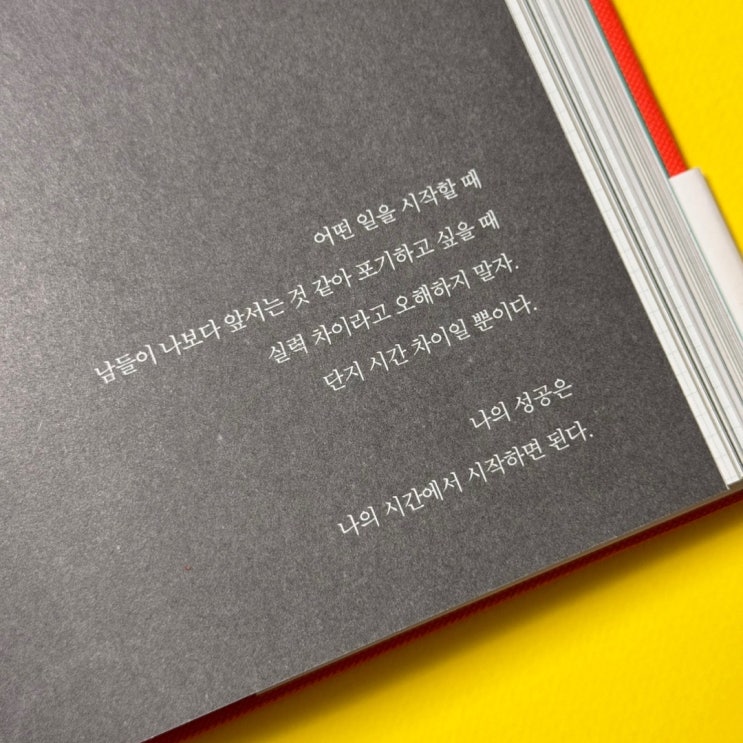 어떤 일을 시작할 때
남들이 나보다 앞서는 것 같아 포기하고 싶을 때
실력 차이라고 오해하지 말자.
단지 시간 차이일 뿐이다.
나의 성공은
나의 시간에서 시작하면 된다.